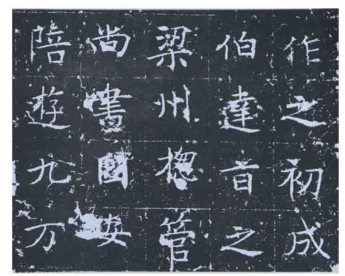 作之初成
伯達首之
梁州揔管
尚書國安
陪遊九万